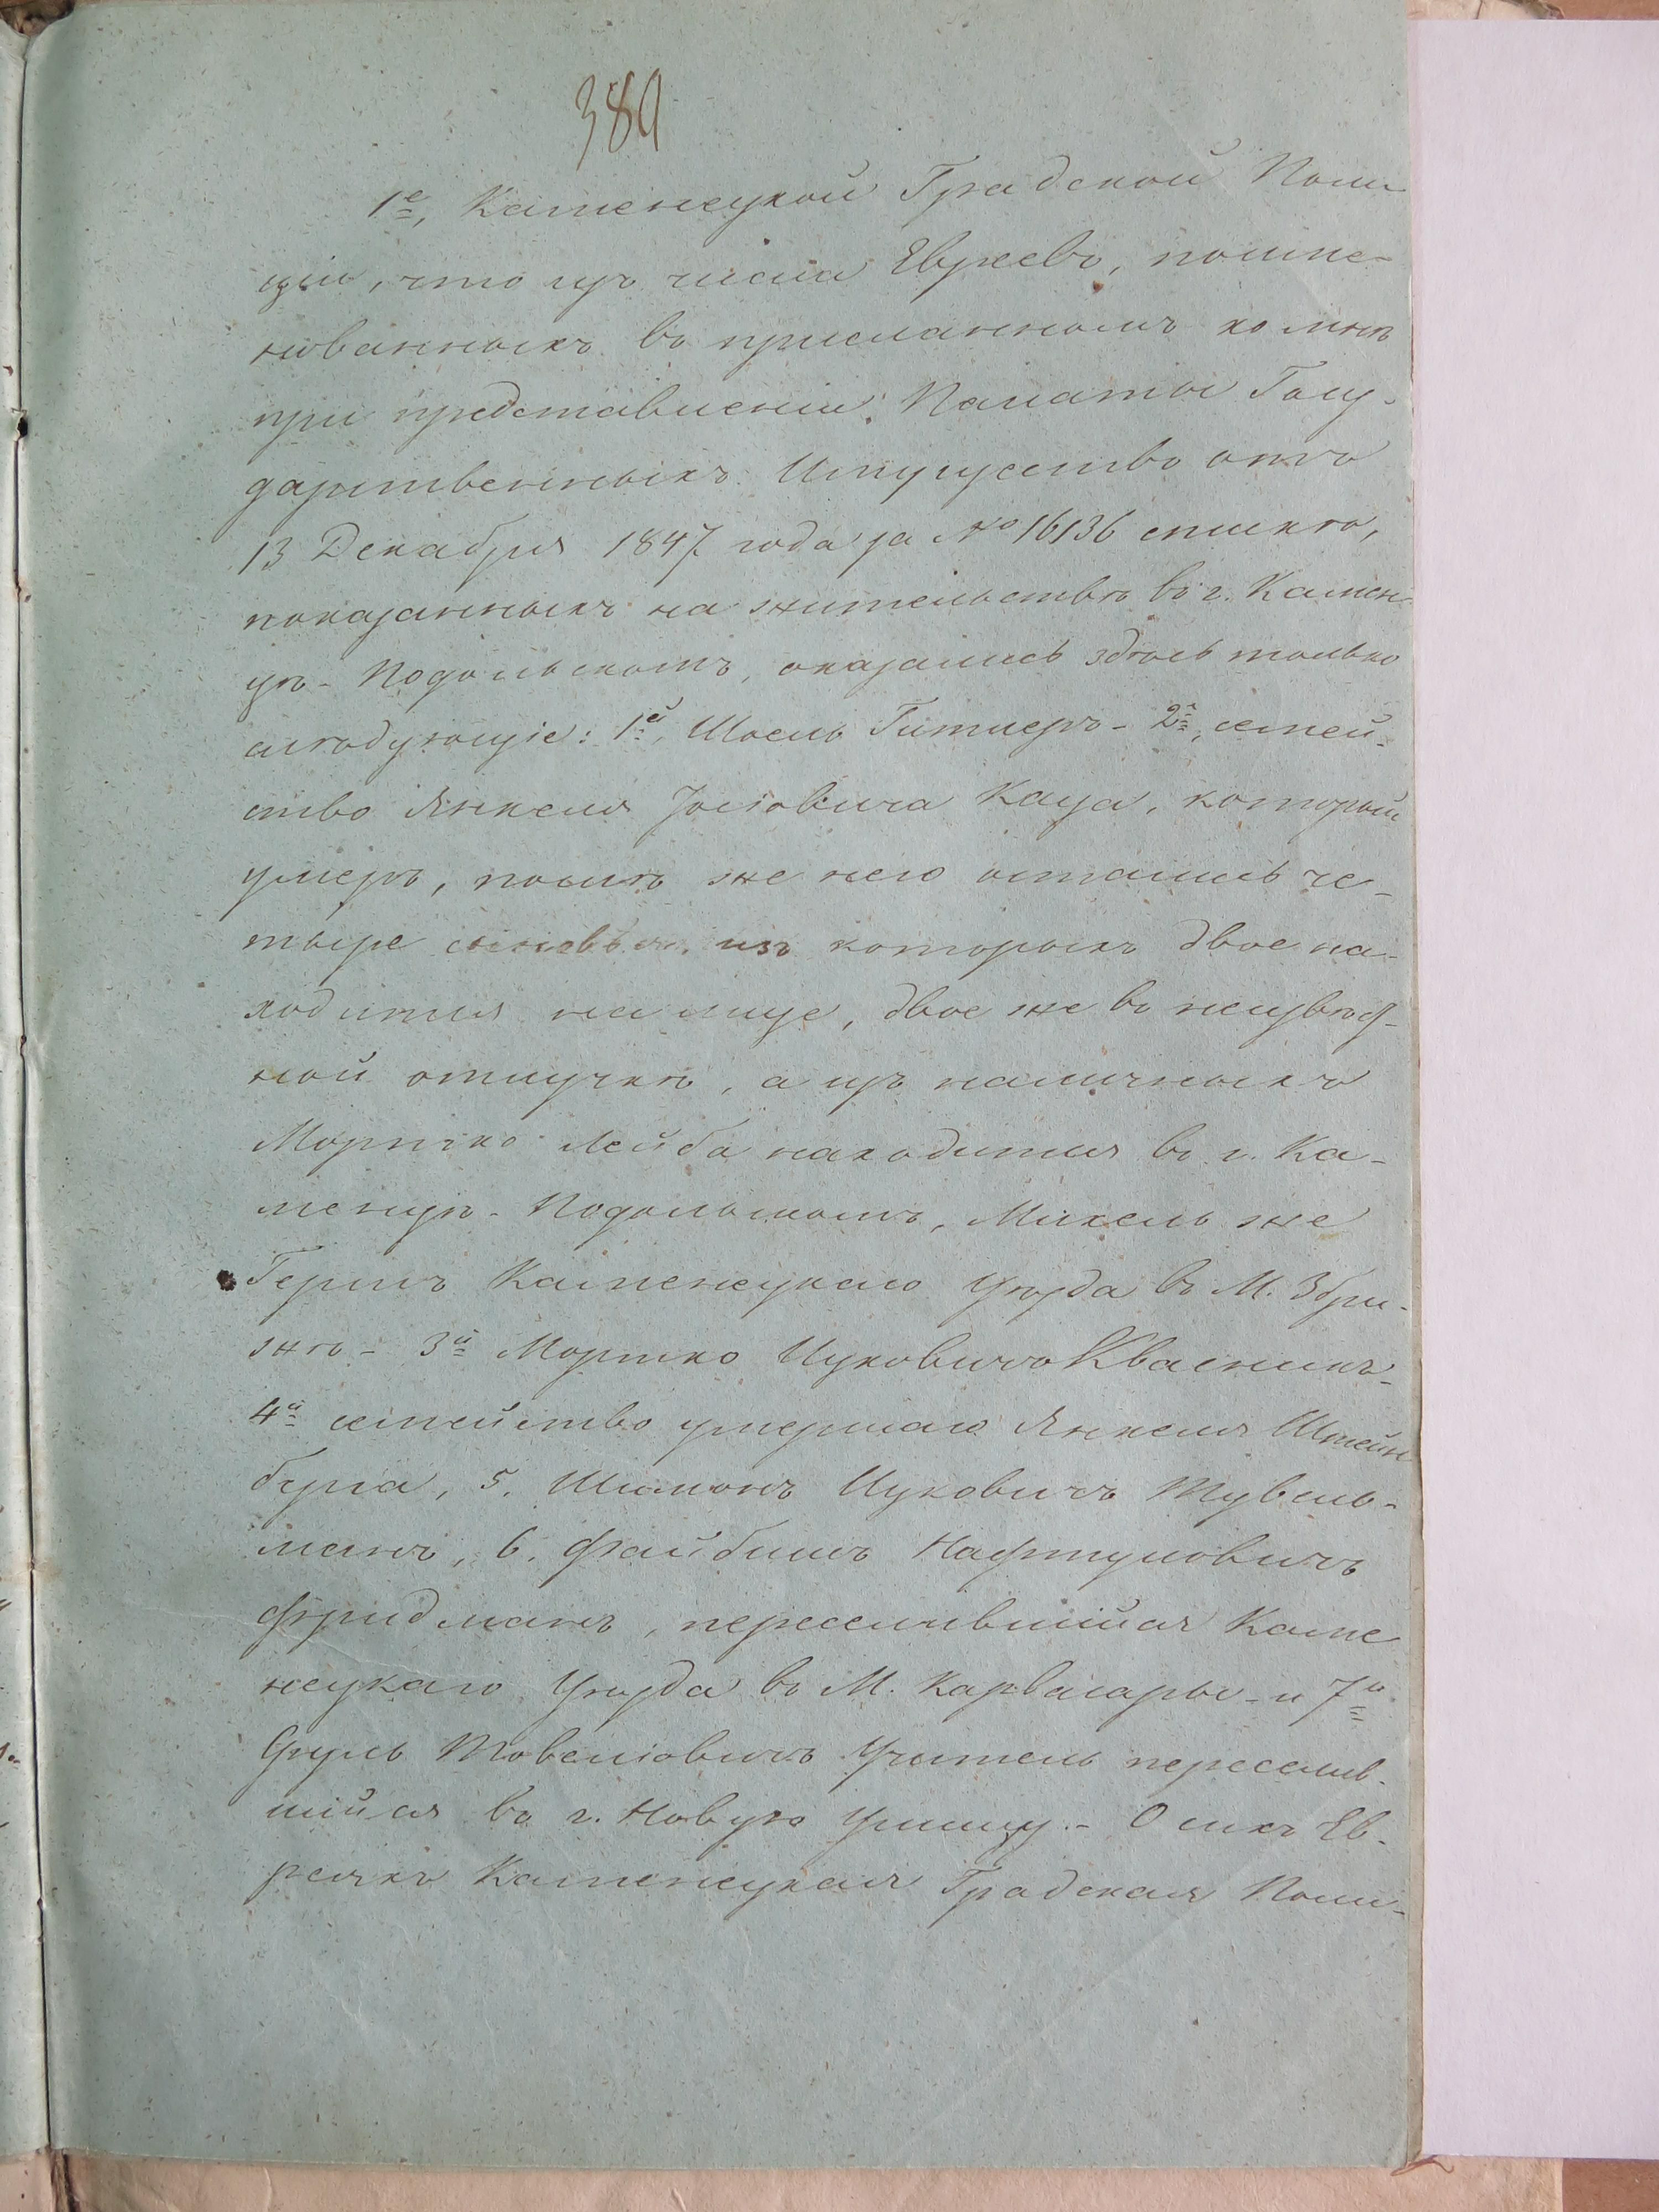 389
1е, Каменецкой Градской Поли-
ціи, что изъ числа Евреевъ, поиме-
нованныхъ въ присланномъ ко мнѣ
при представленіи Палаты Госу-
дарственныхъ Имуществъ отъ
13 Декабря 1847 года за № 16136 спискѣ,
показанныхъ на жительствѣ въ г. Камен-
цѣ-Подольскомъ, оказались здѣсь только
слѣдующіе: 1й, Шаель Гитлеръ - 2е, семей-
ство Янкеля Іосіовича Каца, который
умеръ, послѣ же него остались че-
тыре сыновья, изъ которыхъ двое на-
ходится на лице, двое же въ неизвѣст-
ной отлучкѣ, а изъ наличныхъ
Мортко Лейба находится въ г. Ка-
менцѣ-Подольскомъ, Михель же
Гершъ Каменецкаго Уѣзда въ М. Збри-
жѣ - 3й Мортко Ицковичъ Квасникъ -
4й семейство умершаго Янкеля Штейн
берга, 5. Шимонъ Ицковичъ Тувель-
манъ, 6. Файбишъ Нафтуловичъ
Фридманъ, переселившійся Каме
нецкаго Уѣзда въ М. Карвасары - и 7й
Сруль Товеліовичъ Учитель переселив-
шійся въ г. Новую Ушицу. - О сихъ Ев-
реяхъ Каменецкая Градская Поли-